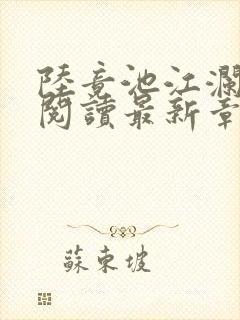 陸竟池江瀾
閱讀最新章
蘇東坡